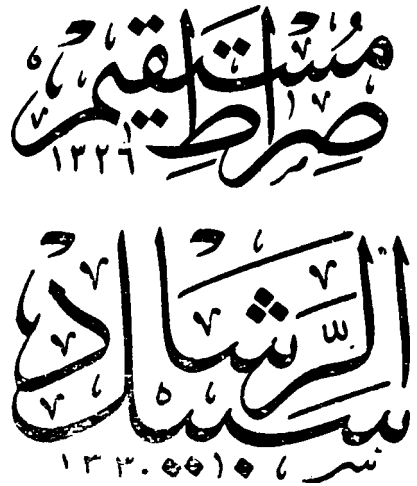 صِراطِ مُستقيم
١٣٢٦
سبيل الرّشاد
١٣٣٠